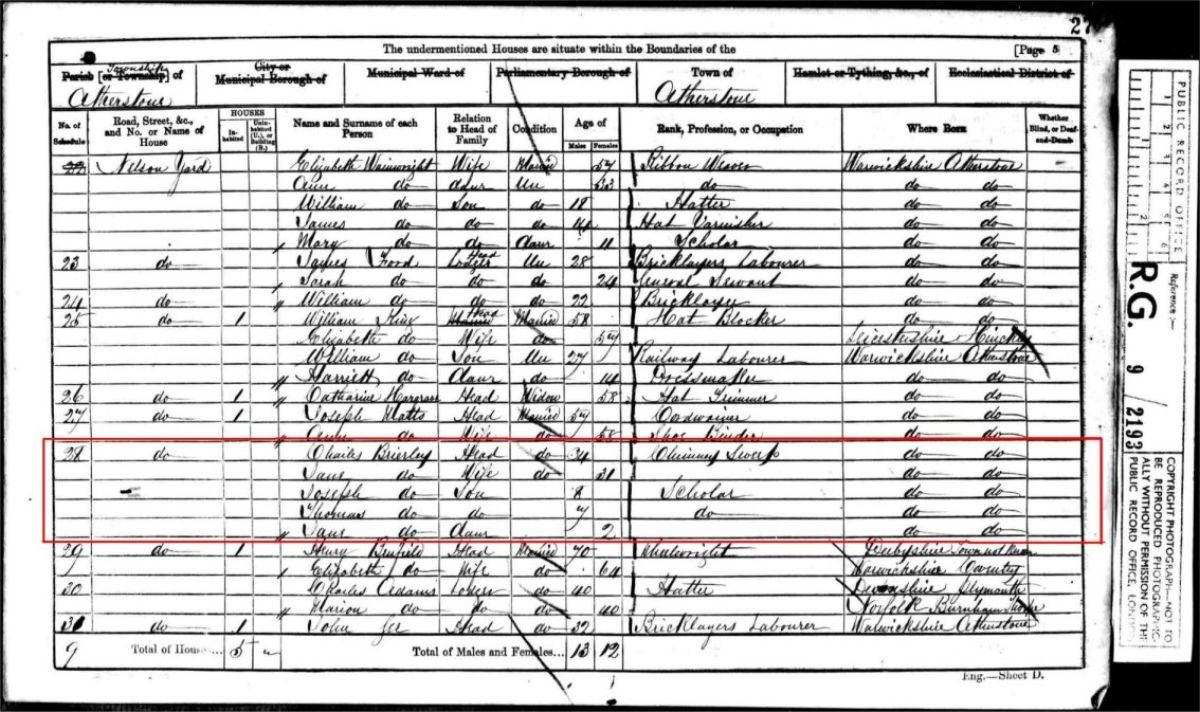 27
The undermentioned Houses are situate within the Boundaries of the [Page 5
Parish [or Township] of Township City or Municipal Borough of Municipal Ward of Parliamentary Borough of Town of Hamlet or Tything, &c., of Ecclesiastical District of
Atherstone Atherstone
No. of Schedule Road, Street, &c., and No. or Name of House HOUSES Inhabited Uninhabited (U.), or building (B.) Name and Surname of each Person Relation to Head of Family Condition Age of Males Females Rank, Profession, or Occupation Where Born Whether Blind, or Deaf-and-Dumb
22 Nelson Yard Elizabeth Wainwright Wife Married Ribbon Weaver Warwickshire Atherstone
Ann do daur Un do do do
William do Son do 18 Hatter do do
James do do do 14 Hat Varnisher do do
Mary do do daur 11 Scholar do do
23 do James Ford Lodger Head Un 28 Bricklayers Labourer do do
Sarah do do do 24 General Servant do do
24 do William do do do 22 Bricklayer do do
25 do 1 William Head Married 58 Hat Blocker do do
Elizabeth do Wife do Leicestershire Hinckley
William do Son Un 27 Railway Labourer Warwickshire Atherstone
Harriett do daur do 14 Dressmaker do do
26 do 1 Catharine Hargrave Head Widow 58 Hat Trimmer do do
27 do 1 Joseph Matts Head Married Cordwainer do do
Ann do Wife do 58 Shoe Binder do do
28 do Charles Brierley Head do 34 Chimney Sweep do do
Jane do Wife do 31 do do
Joseph do Son 8 Scholar do do
Thomas do do do do do
Jane do Daur 2 do do
29 do 1 Henry Benfield Head Married 70 Wheelwright Derbyshire Town not Known
Elizabeth do Wife do 64 Warwickshire Coventry
30 Charles Adams Lodger do 40 Hatter Devonshire Plymouth
Marion do do do 40 Norfolk Burnham
31 do 1 John Head do 32 Bricklayers Labourer Warwickshire Atherstone
9 Total of Houses... 5 Total of Males and Females... 13 12
Eng.—Sheet D.
PUBLIC RECORD OFFICE
Reference:-
R.G. 9 / 2193
COPYRIGHT PHOTOGRAPH—NOT TO BE REPRODUCED PHOTOGRAPHICALLY WITHOUT PERMISSION OF THE PUBLIC RECORD OFFICE, LONDON